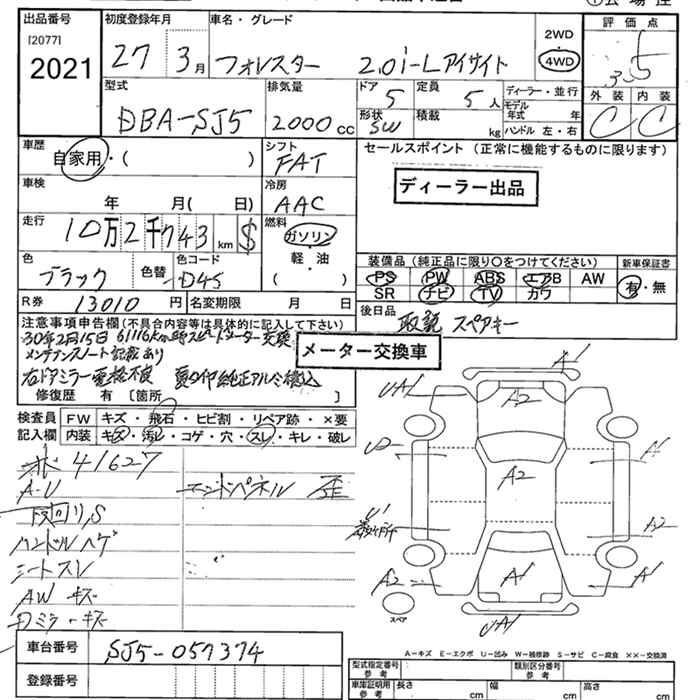 出品番号
[2077]
2021
初度登録年月
27 3月
車名・グレード
フォレスター 2.0i-Lアイサイト
2WD
4WD
評価点
3.5
外装 内装
C C
型式
DBA-SJ5
排気量
2000cc
ドア
5
定員
5人
形状
SW
積載
kg
ディーラー・並行
モデル年式 年
ハンドル 左・右
車歴
自家用・( )
シフト
FAT
セールスポイント (正常に機能するものに限ります)
ディーラー出品
車検
年 月( 日)
冷房
AAC
走行
10万2千743km $
燃料
ガソリン
軽・油
( ・ )
色
ブラック
色替
色コード
D4S
装備品 (純正品に限り○をつけてください)
PS PW ABS エアB AW
SR ナビ TV カワ
新車保証書
有・無
R券 13010円
名変期限 月 日
後日品
取説 スペアキー
注意事項申告欄 (不具合内容等は具体的に記入して下さい)
30年2月15日 61116km時スピードメーター交換
メンテナンスノート記載あり
メーター交換車
右ドアミラー電格不良 夏タイヤ純正アルミ積込
修復歴 有 [箇所 ]
検査員記入欄
FW キズ・飛石・ヒビ割・リペア跡・×要
内装 キズ・汚れ・コゲ・穴・スレ・キレ・破レ
41627
A-U
エンドパネル 歪
ハンドルハゲ
シートスレ
AW キズ
ドミラーキズ
A1
UA1
A2
U2
A1
A2
U1
A2
A2
A1
A1
UA1
スペア
A-キズ E-エクボ U-凹み W-補修跡 S-サビ C-腐食 ××-交換済
車台番号 SJ5-057374
登録番号
型式指定番号 参考
類別区分番号 参考
車庫証明用 参考
長さ cm
幅 cm
高さ cm